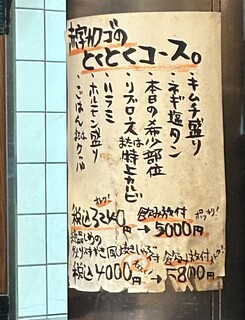 赤字カゴの
とくとくコース。
・キムチ盛り
・ネギ塩タン
・本日の希少部位
・リブロースまたは特上カルビ
・ハラミ
・ホルモン盛り
・ごはんorクッパ
税込3240円 → 飲み放付 5000円 ポッキリ!
税込4000円 → 飲み放付 5800円